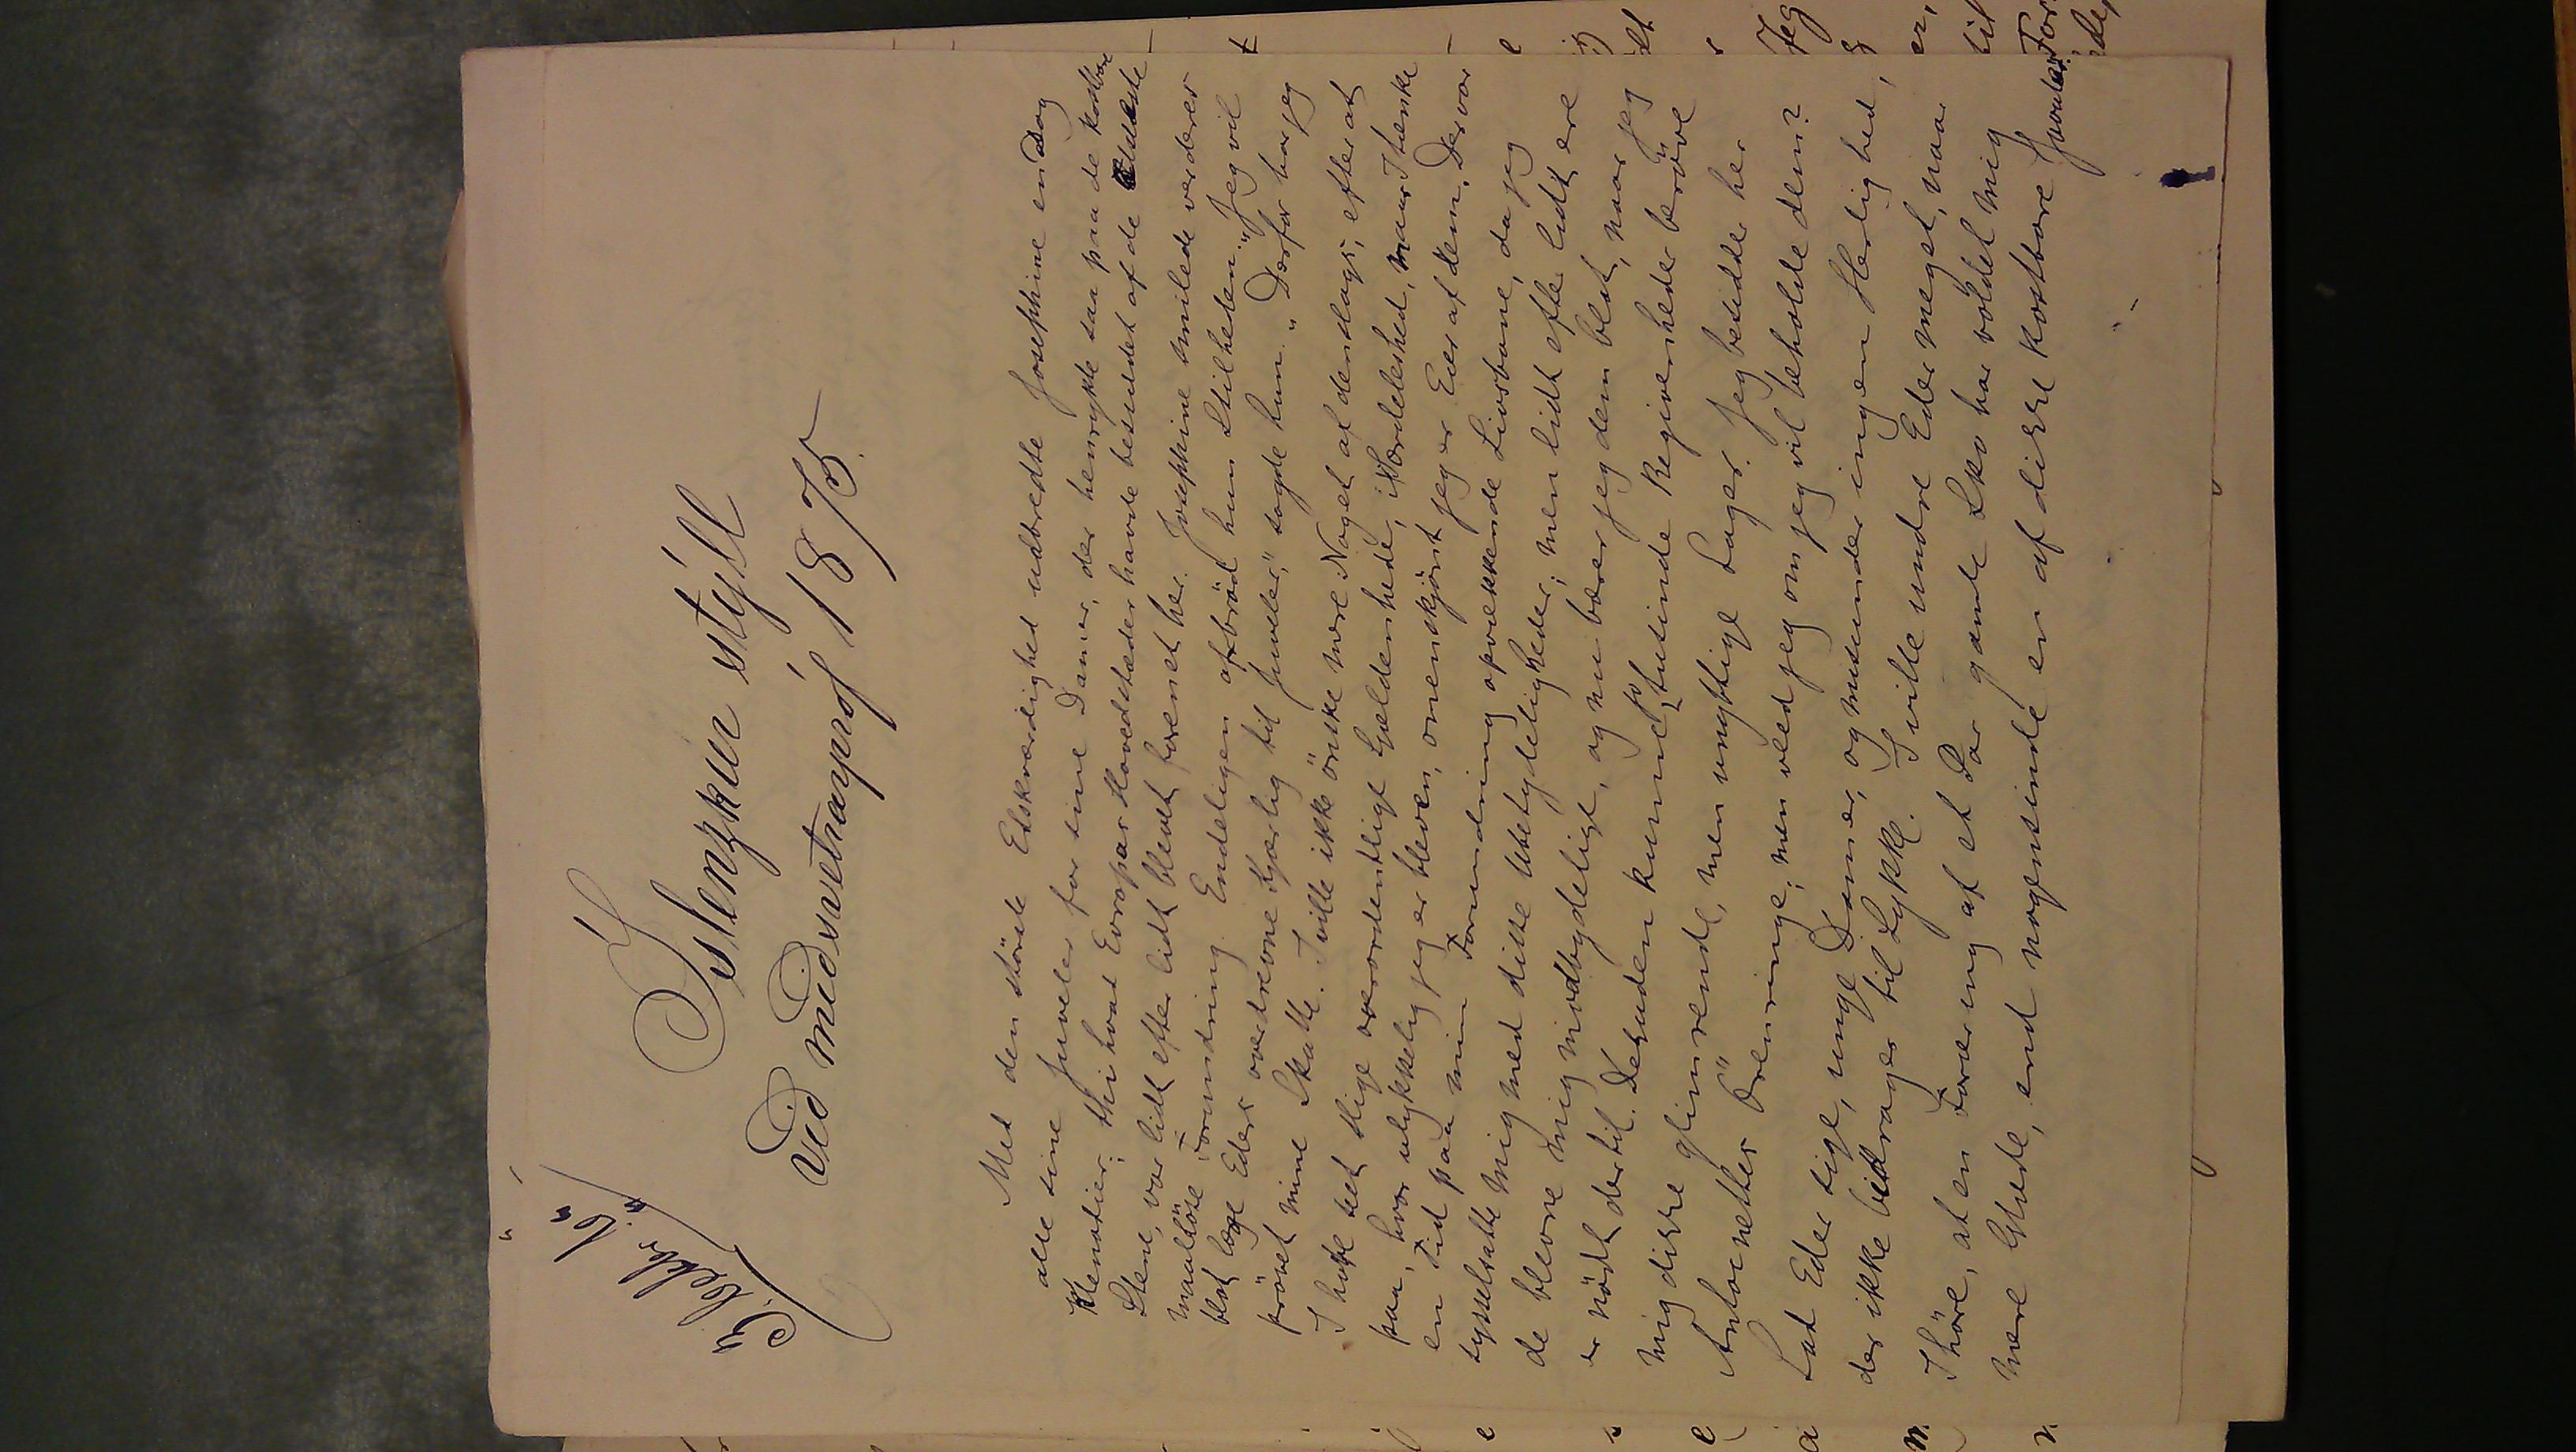 Íslenzkur stýll
við miðsvetrarpróf 1875.
Med den störste Elskværdighed udbredte Josephine en Dag
alle sine Juveler for sine Damer, der henrykte saa paa de kostbare
Klenodier; thi hvad Evropas Hovedstæder havde besiddet af de ædleste
Stene, var lidt efter lidt blevet forenet her. Josephine smilede ver deres
maalløse Forundring. Endeligen afbröd hun Stilheden. "Jeg vil
blot læge Eders overdrevne Kjærlig til Juveler," sagde hun. "Derfor har jeg
prövet mine Skatte. I ville ikke önske mere Noget af denslags, efter at
I have seet slige overordentlige Sjeldenhede, i Særdeleshed, naar I tænke
paa, hvor ulykkelig jeg er bleven, omendskjönt jeg er Eier af dem. Der var
en Tid paa min Forundring opvækkende Livsbane, da jeg
sysselsatte mig med disse Ubetydeligheder; men lidt efter lidt ere
de blevne mig modbydelige, og nu bærer jeg dem blot, naar jeg
er nödt dertil. Desuden kunne to tusinde Begivenheder beröve
mig disse glimrende, men unyttige Sager. Jeg besidder her
Antoinettes Örenringe; men veed jeg om jeg vil beholde dem?
Lad Eder sige, unge Damer, og misunder ingen Herlighed,
der ikke bidrager til Lykke. I ville undre Eder meget, naar
I höre, at en Foræring af et Par gamle Sko har voldet mig
mere Glæde, end nogensinde en af disse kostbare Juveler.